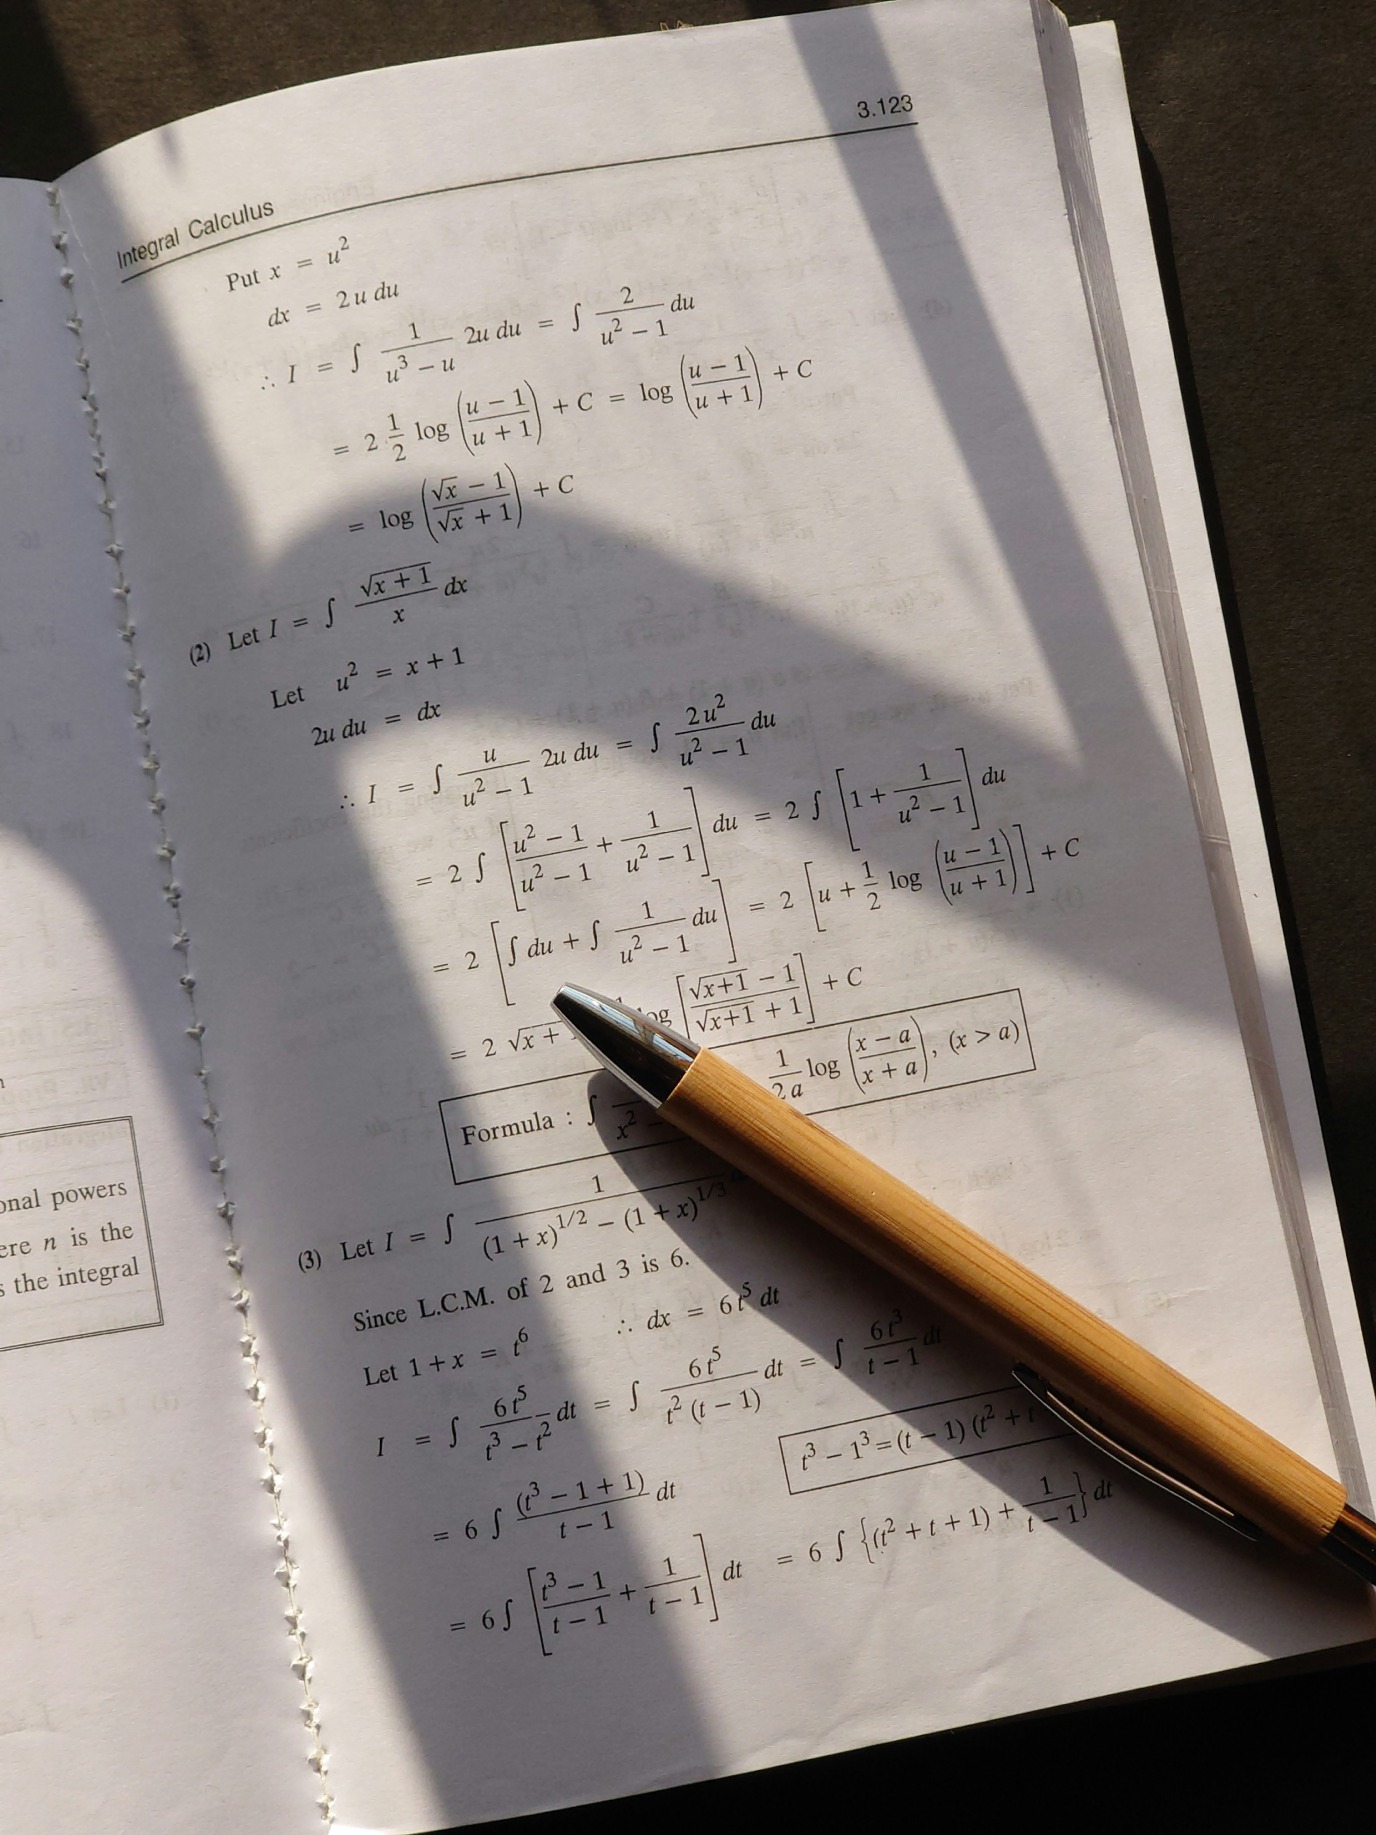 3.123
Integral Calculus
Put x = u²
dx = 2u du
∴ I = ∫ 1/(u³ − u) 2u du = ∫ 2/(u² − 1) du
= 2 · 1/2 log ((u − 1)/(u + 1)) + C = log ((u − 1)/(u + 1)) + C
= log ((√x − 1)/(√x + 1)) + C
(2) Let I = ∫ √(x + 1)/x dx
Let u² = x + 1
2u du = dx
∴ I = ∫ u/(u² − 1) 2u du = ∫ 2u²/(u² − 1) du
= 2 ∫ [(u² − 1)/(u² − 1) + 1/(u² − 1)] du = 2 ∫ [1 + 1/(u² − 1)] du
= 2 [∫ du + ∫ 1/(u² − 1) du] = 2 [u + 1/2 log ((u − 1)/(u + 1))] + C
= 2 √x + log [(√(x+1) − 1)/(√(x+1) + 1)] + C
Formula : ∫ x² 1/2a log ((x − a)/(x + a)), (x > a)
(3) Let I = ∫ 1/((1 + x)^1/2 − (1 + x)^1/3)
Since L.C.M. of 2 and 3 is 6.
Let 1 + x = t⁶ ∴ dx = 6t⁵ dt
I = ∫ 6t⁵/(t³ − t²) dt = ∫ 6t⁵/(t² (t − 1)) dt = ∫ 6t³/(t − 1) dt
t³ − 1³ = (t − 1) (t² + t
= 6 ∫ (t³ − 1 + 1)/(t − 1) dt
= 6 ∫ [(t³ − 1)/(t − 1) + 1/(t − 1)] dt = 6 ∫ {(t² + t + 1) + 1/(t − 1)} dt
onal powers
ere n is the
s the integral